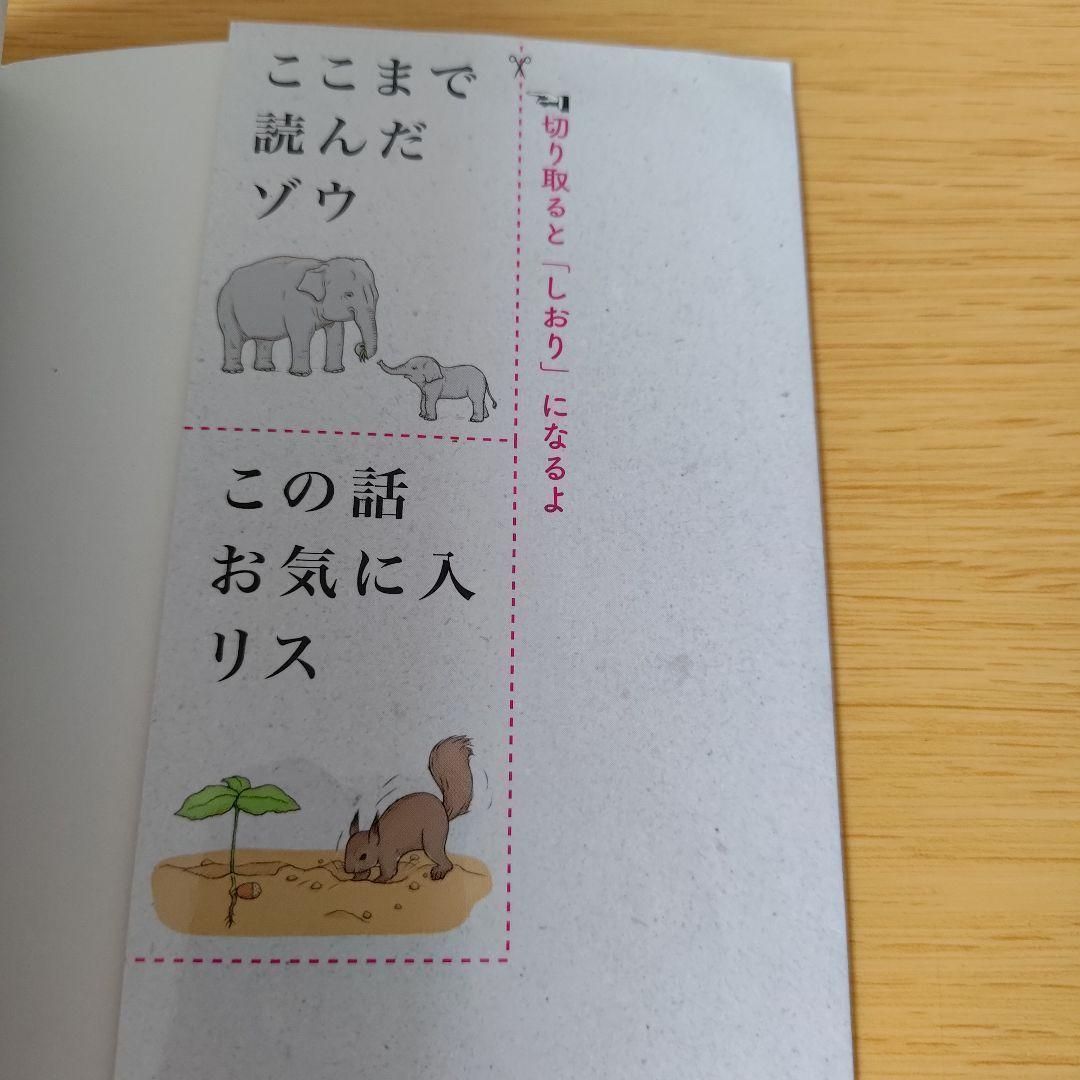 ここまで
読んだ
ゾウ
切り取ると「しおり」になるよ
この話
お気に入
リス